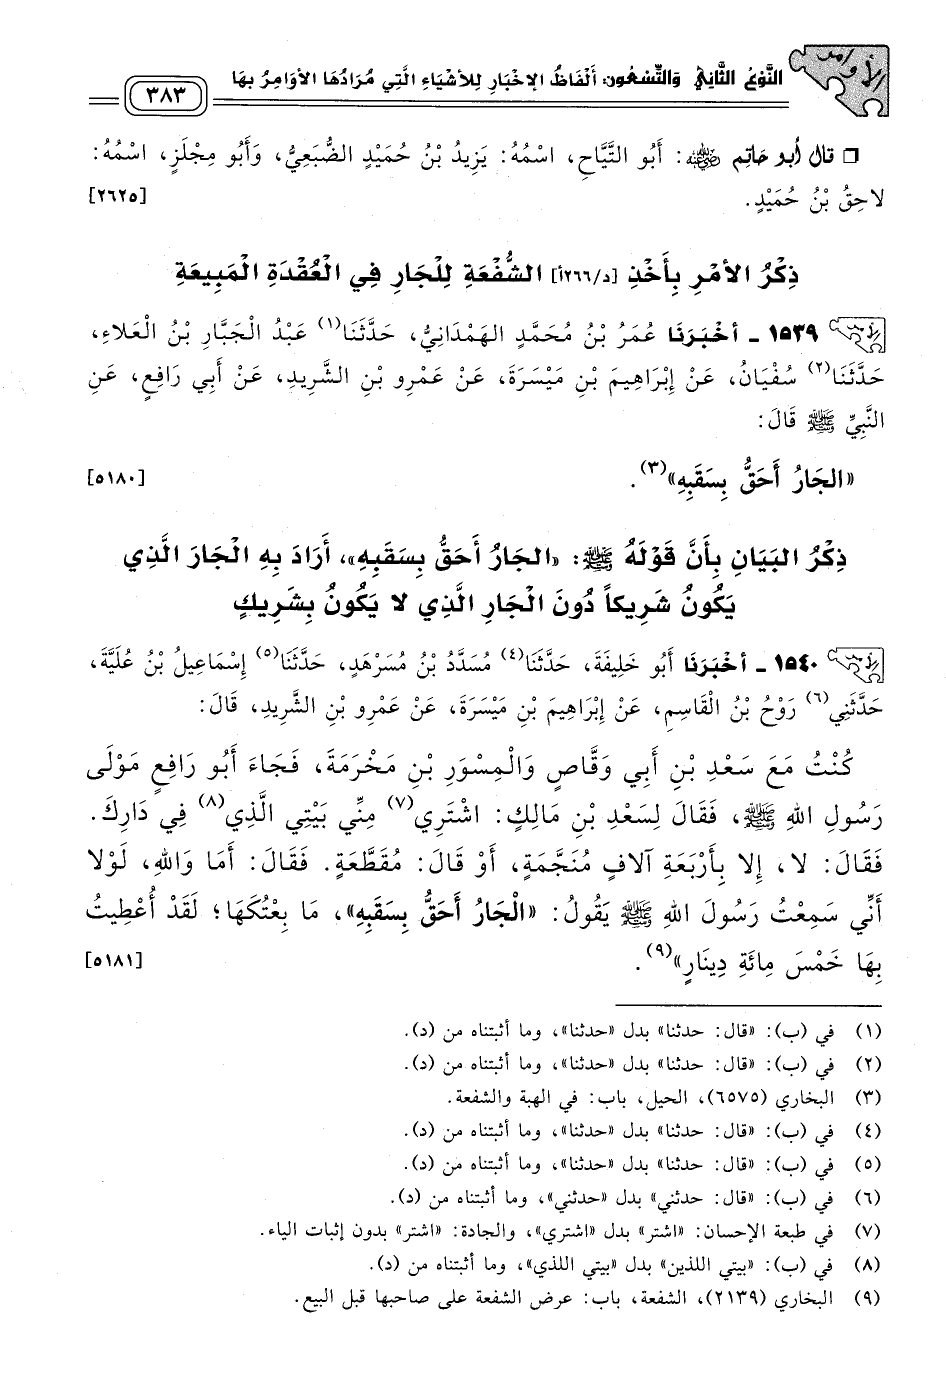 الأوامر
النَّوْعُ الثَّانِي وَالتِّسْعُون: أَلْفَاظُ الإِخْبَارِ لِلأَشْيَاءِ الَّتِي مُرَادُهَا الأَوَامِرُ بِهَا
٣٨٣
❒ قال أبو حاتم رضي الله عنه: أَبُو التَّيَّاحِ، اسْمُهُ: يَزِيدُ بْنُ حُمَيْدٍ الضُّبَعِيُّ، وَأَبُو مِجْلَزٍ، اسْمُهُ:
لاحِقُ بْنُ حُمَيْدٍ. [٢٦٢٥]
ذِكْرُ الأَمْرِ بِأَخْذِ [د/٢٦٦أ] الشُّفْعَةِ لِلْجَارِ فِي الْعُقْدَةِ الْمَبِيعَةِ
١٥٣٩ - أَخْبَرَنَا عُمَرُ بْنُ مُحَمَّدٍ الهَمْدَانِيُّ، حَدَّثَنَا(١) عَبْدُ الْجَبَّارِ بْنُ الْعَلاءِ،
حَدَّثَنَا(٢) سُفْيَانُ، عَنْ إِبْرَاهِيمَ بْنِ مَيْسَرَةَ، عَنْ عَمْرِو بْنِ الشَّرِيدِ، عَنْ أَبِي رَافِعٍ، عَنِ
النَّبِيِّ ﷺ قَالَ:
«الجَارُ أَحَقُّ بِسَقَبِهِ»(٣). [٥١٨٠]
ذِكْرُ البَيَانِ بِأَنَّ قَوْلَهُ ﷺ: «الجَارُ أَحَقُّ بِسَقَبِهِ»، أَرَادَ بِهِ الْجَارَ الَّذِي
يَكُونُ شَرِيكاً دُونَ الْجَارِ الَّذِي لا يَكُونُ بِشَرِيكٍ
١٥٤٠ - أَخْبَرَنَا أَبُو خَلِيفَةَ، حَدَّثَنَا(٤) مُسَدَّدُ بْنُ مُسَرْهَدٍ، حَدَّثَنَا(٥) إِسْمَاعِيلُ بْنُ عُلَيَّةَ،
حَدَّثَنِي(٦) رَوْحُ بْنُ الْقَاسِمِ، عَنْ إِبْرَاهِيمَ بْنِ مَيْسَرَةَ، عَنْ عَمْرِو بْنِ الشَّرِيدِ، قَالَ:
كُنْتُ مَعَ سَعْدِ بْنِ أَبِي وَقَّاصٍ وَالْمِسْوَرِ بْنِ مَخْرَمَةَ، فَجَاءَ أَبُو رَافِعٍ مَوْلَى
رَسُولِ اللهِ ﷺ، فَقَالَ لِسَعْدِ بْنِ مَالِكٍ: اشْتَرِي(٧) مِنِّي بَيْتِي الَّذِي(٨) فِي دَارِكَ.
فَقَالَ: لا، إِلا بِأَرْبَعَةِ آلافٍ مُنَجَّمَةٍ، أَوْ قَالَ: مُقَطَّعَةٍ. فَقَالَ: أَمَا وَاللهِ، لَوْلا
أَنِّي سَمِعْتُ رَسُولَ اللهِ ﷺ يَقُولُ: «الْجَارُ أَحَقُّ بِسَقَبِهِ»، مَا بِعْتُكَهَا؛ لَقَدْ أُعْطِيتُ
بِهَا خَمْسَ مِائَةِ دِينَارٍ»(٩). [٥١٨١]
(١) في (ب): «قال: حدثنا» بدل «حدثنا»، وما أثبتناه من (د).
(٢) في (ب): «قال: حدثنا» بدل «حدثنا»، وما أثبتناه من (د).
(٣) البخاري (٦٥٧٥)، الحيل، باب: في الهبة والشفعة.
(٤) في (ب): «قال: حدثنا» بدل «حدثنا»، وما أثبتناه من (د).
(٥) في (ب): «قال: حدثنا» بدل «حدثنا»، وما أثبتناه من (د).
(٦) في (ب): «قال: حدثني» بدل «حدثني»، وما أثبتناه من (د).
(٧) في طبعة الإحسان: «اشتر» بدل «اشتري»، والجادة: «اشتر» بدون إثبات الياء.
(٨) في (ب): «بيتي اللذين» بدل «بيتي اللذي»، وما أثبتناه من (د).
(٩) البخاري (٢١٣٩)، الشفعة، باب: عرض الشفعة على صاحبها قبل البيع.